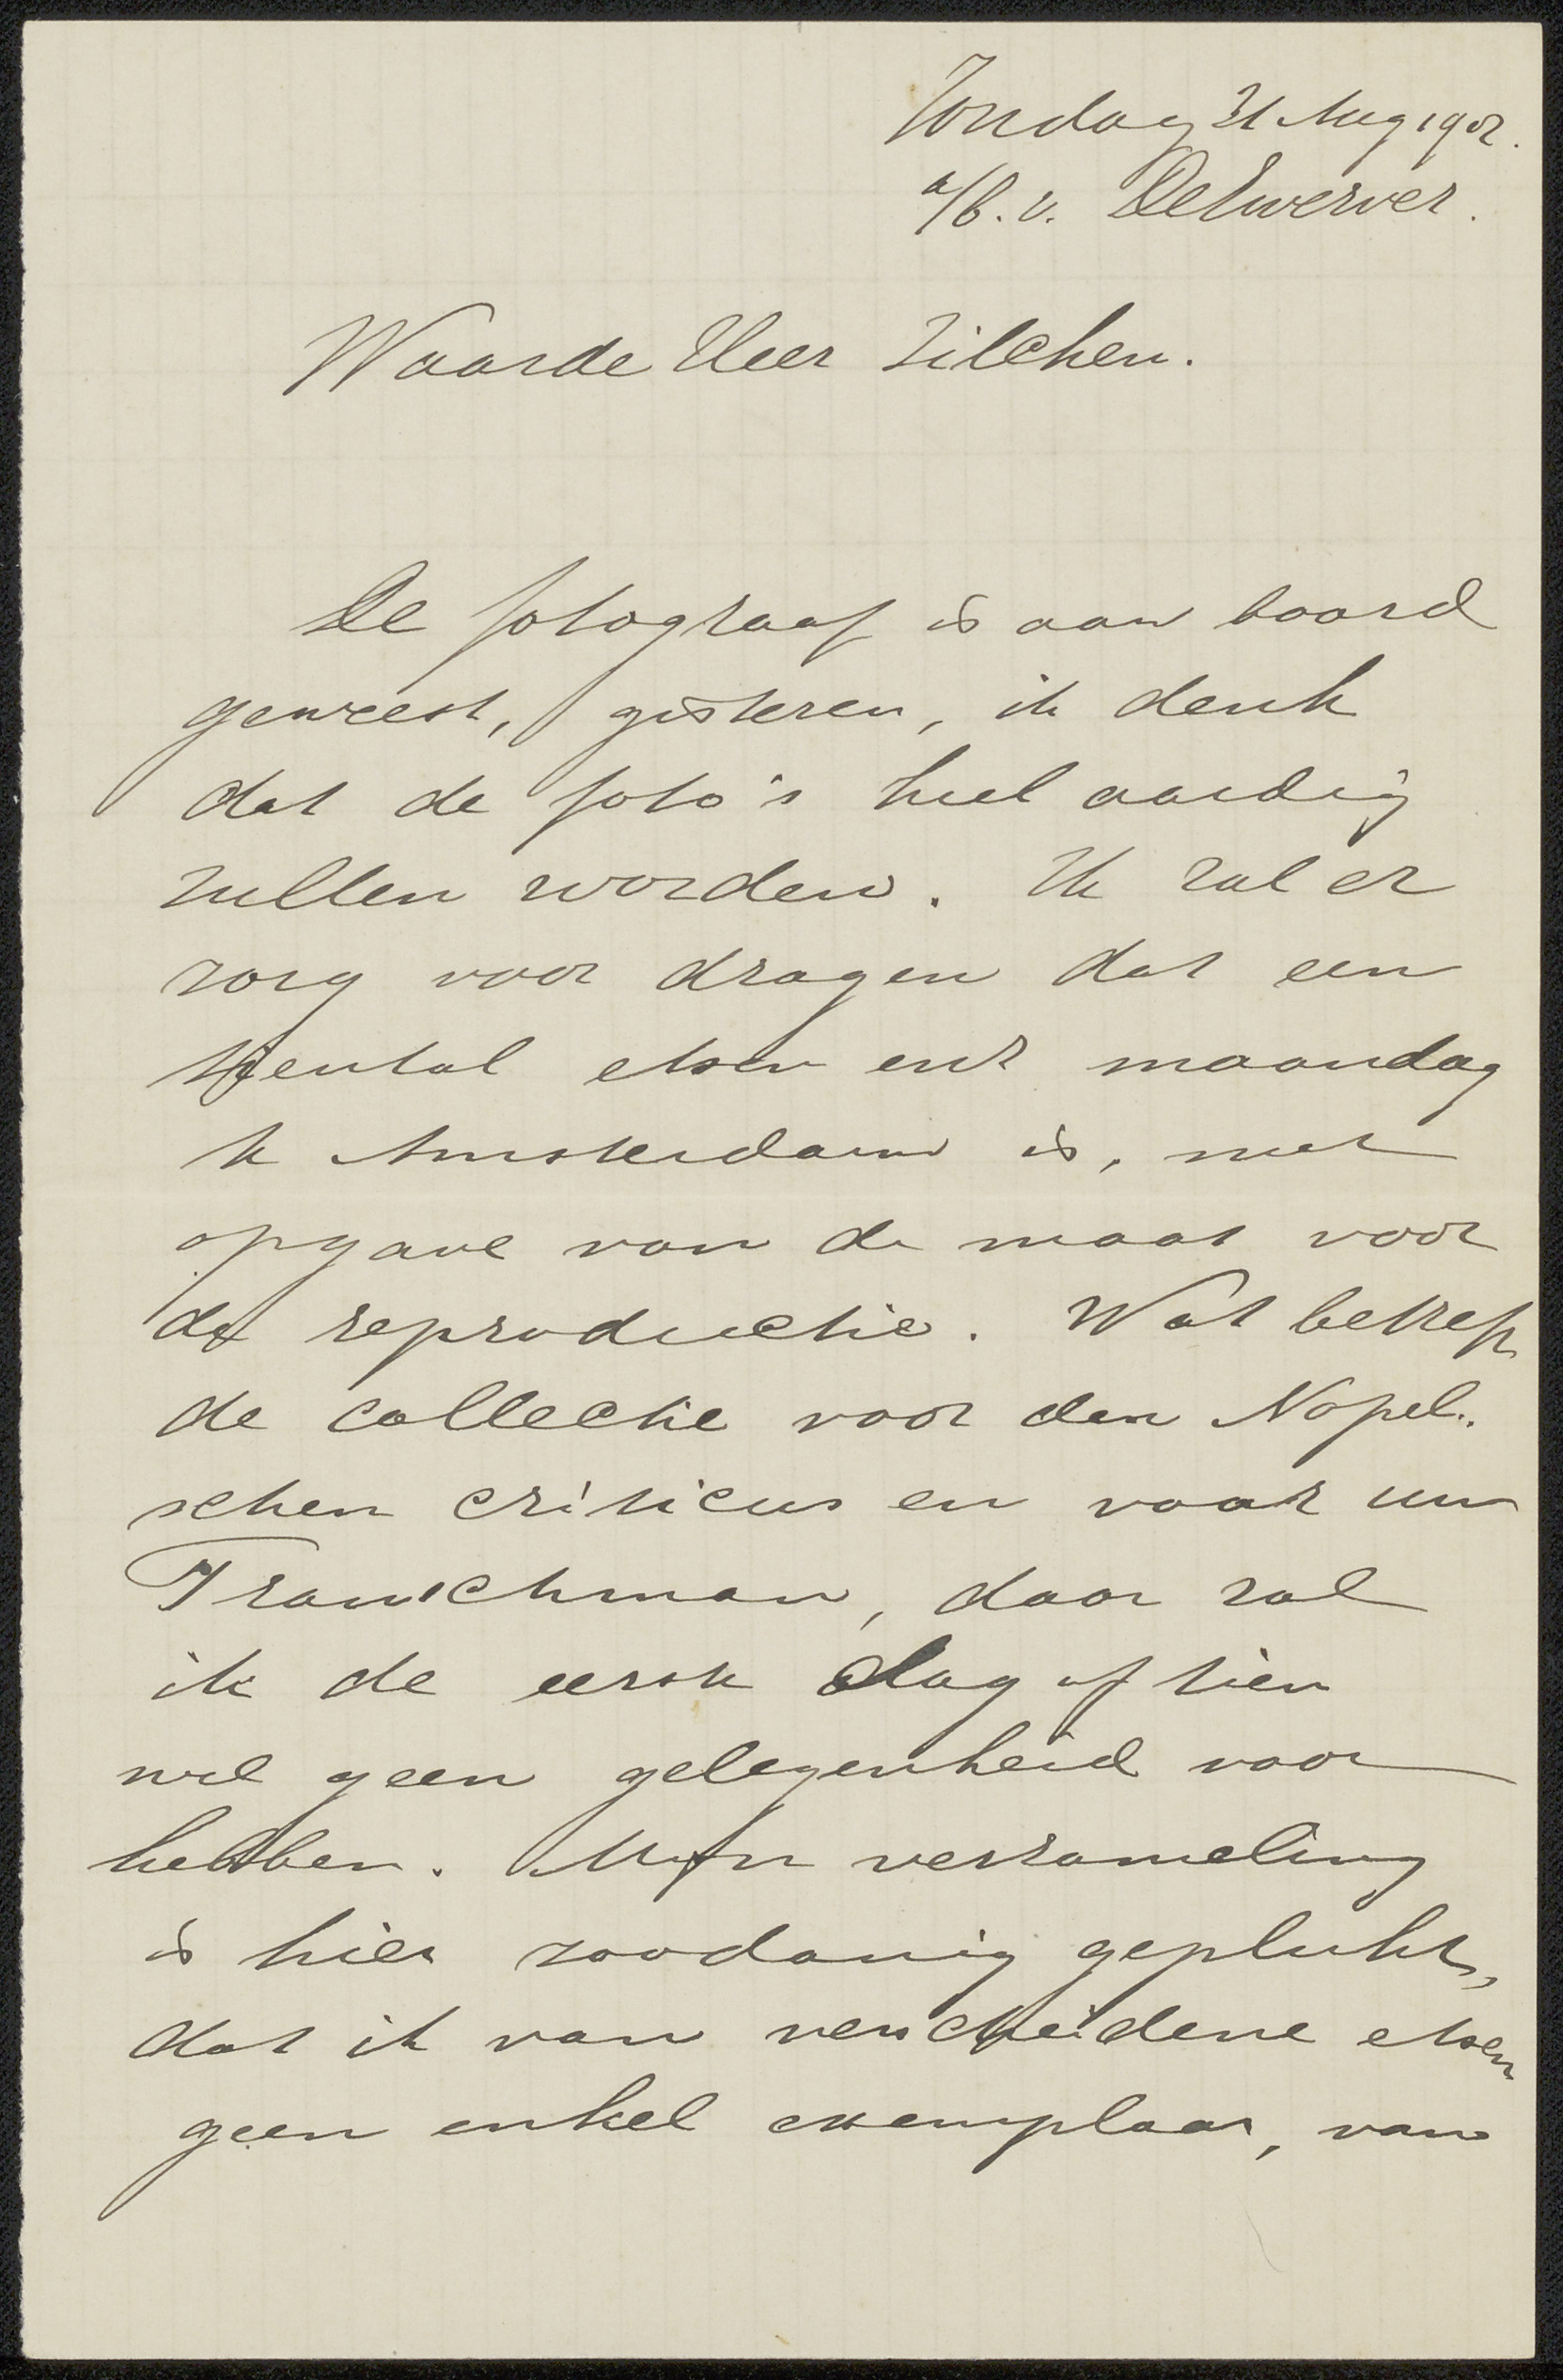 Zondag 31 Aug 1902.
a/b. v. De Zwerver.
Waarde Heer Zilcken.
De fotograaf is aan boord
geweest, gisteren, ik denk
dat de foto's heel aardig
zullen worden. Ik zal er
zorg voor dragen dat een
tiental etsen enz maandag
te Amsterdam is, met
opgave van de maat voor
de reproductie. Wat betreft
de collectie voor den Napel-
schen criticus en voor uw
Franschman, daar zal
ik de eerste dag of tien
wel geen gelegenheid voor
hebben. Mijn verzameling
is hier zoodanig geplukt,
dat ik van verscheidene etsen
geen enkel exemplaar, van